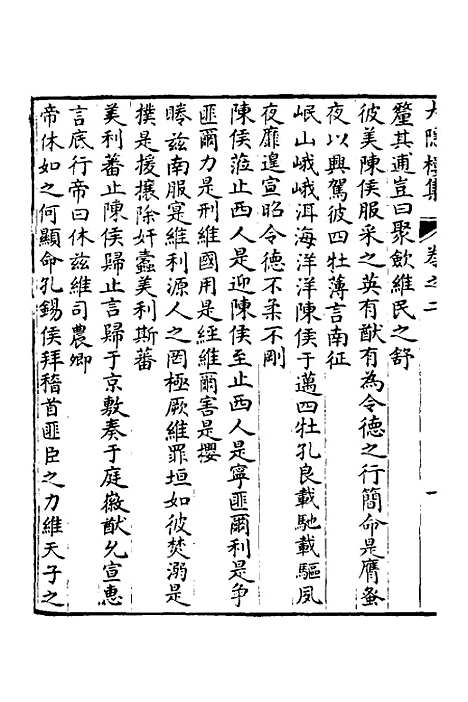 大隱樓集 卷之二 一
釐其逋豈曰聚斂維民之舒
彼美陳侯服采之英有猷有為令德之行簡命是膺蚤
夜以興駕彼四牡薄言南征
岷山峨峨洱海洋洋陳侯于邁四牡孔良載馳載驅夙
夜靡遑宣昭令德不柔不剛
陳侯蒞止西人是迎陳侯至止西人是寧匪爾利是爭
匪爾力是刑維國用是經維爾害是攖
睠茲南服寔維利源人之罔極厥維罪垣如彼焚溺是
撲是援攘除奸蠹美利斯蕃
美利蕃止陳侯歸止言歸于京敷奏于庭嶶猷允宣惠
言底行帝曰休茲維司農卿
帝休如之何顯命孔錫侯拜稽首匪臣之力維天子之